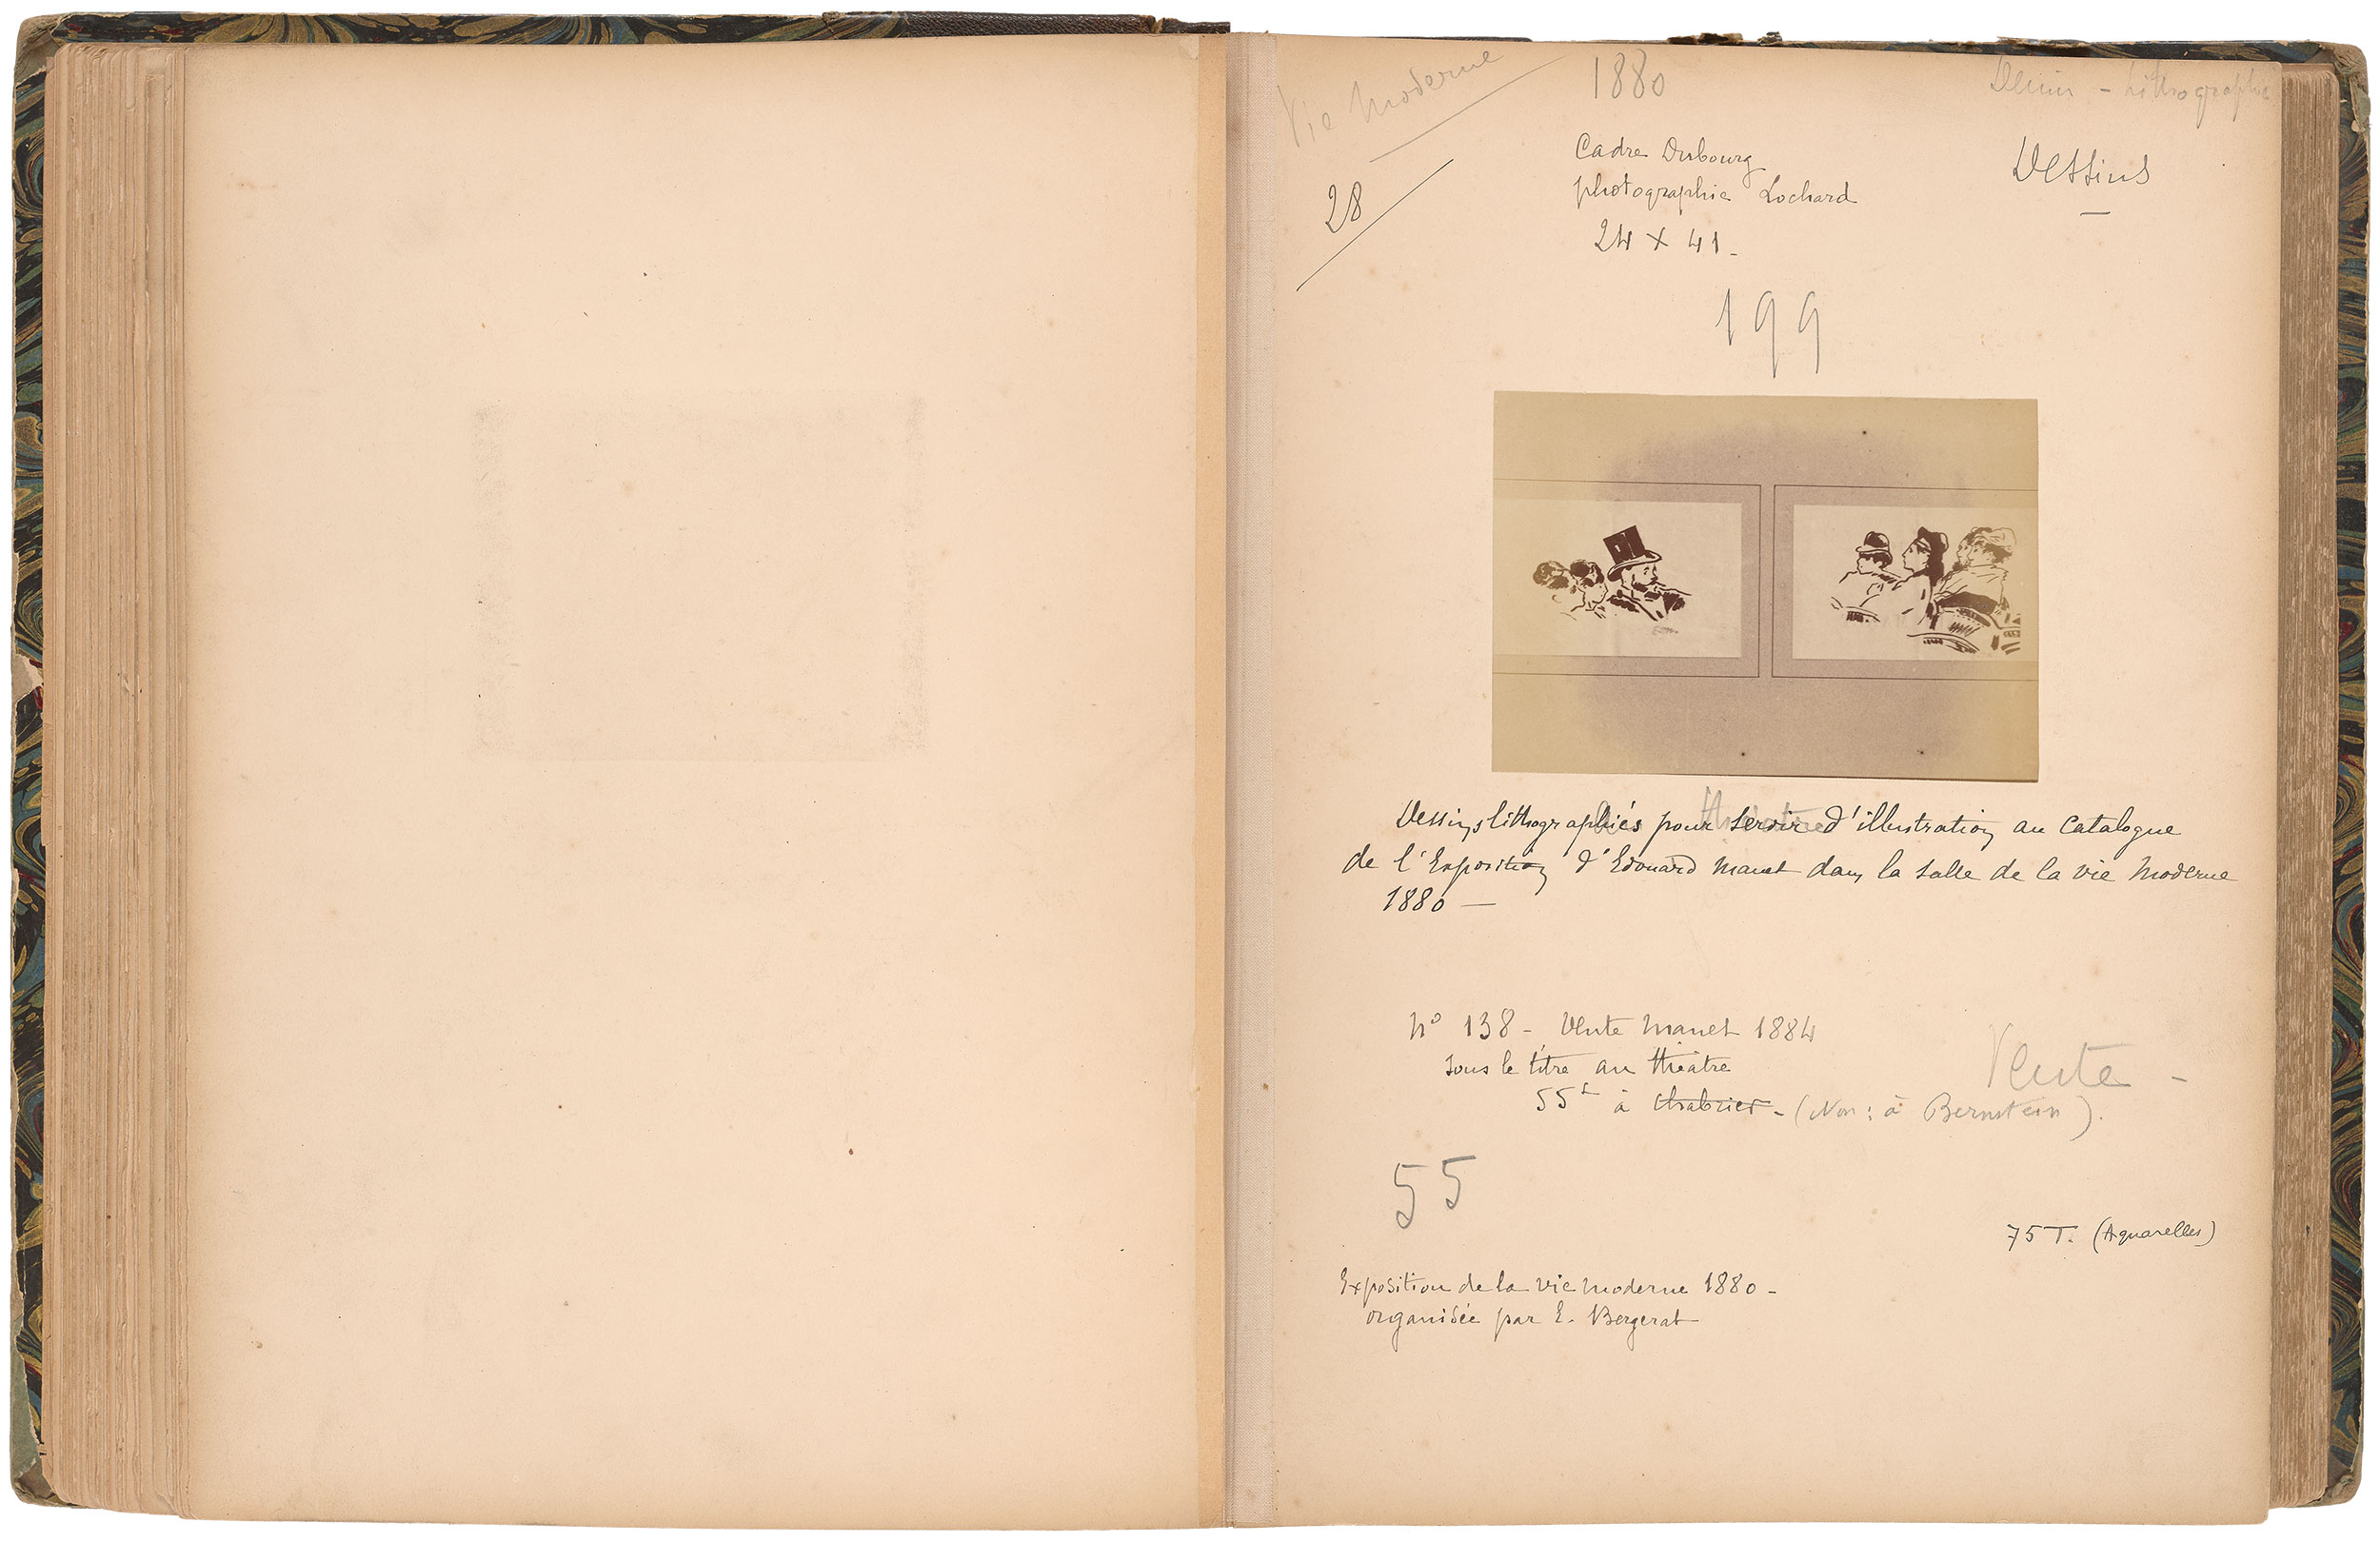 Vie Moderne
1880
Dessin - Lithographie
28
Cadre Dubourg
photographie Lochard
24 x 41 -
Dessins
199
Dessins lithographiés pour servir d'illustration au Catalogue
de l'Exposition d'Edouard Manet dans la salle de la vie Moderne
1880 —
N° 138 - Vente Manet 1884
sous le titre au théâtre
55 f à Chabrier - (Non : à Bernstein).
Vente -
55
75 T. (Aquarelles)
Exposition de la vie Moderne 1880 -
organisée par E. Bergerat